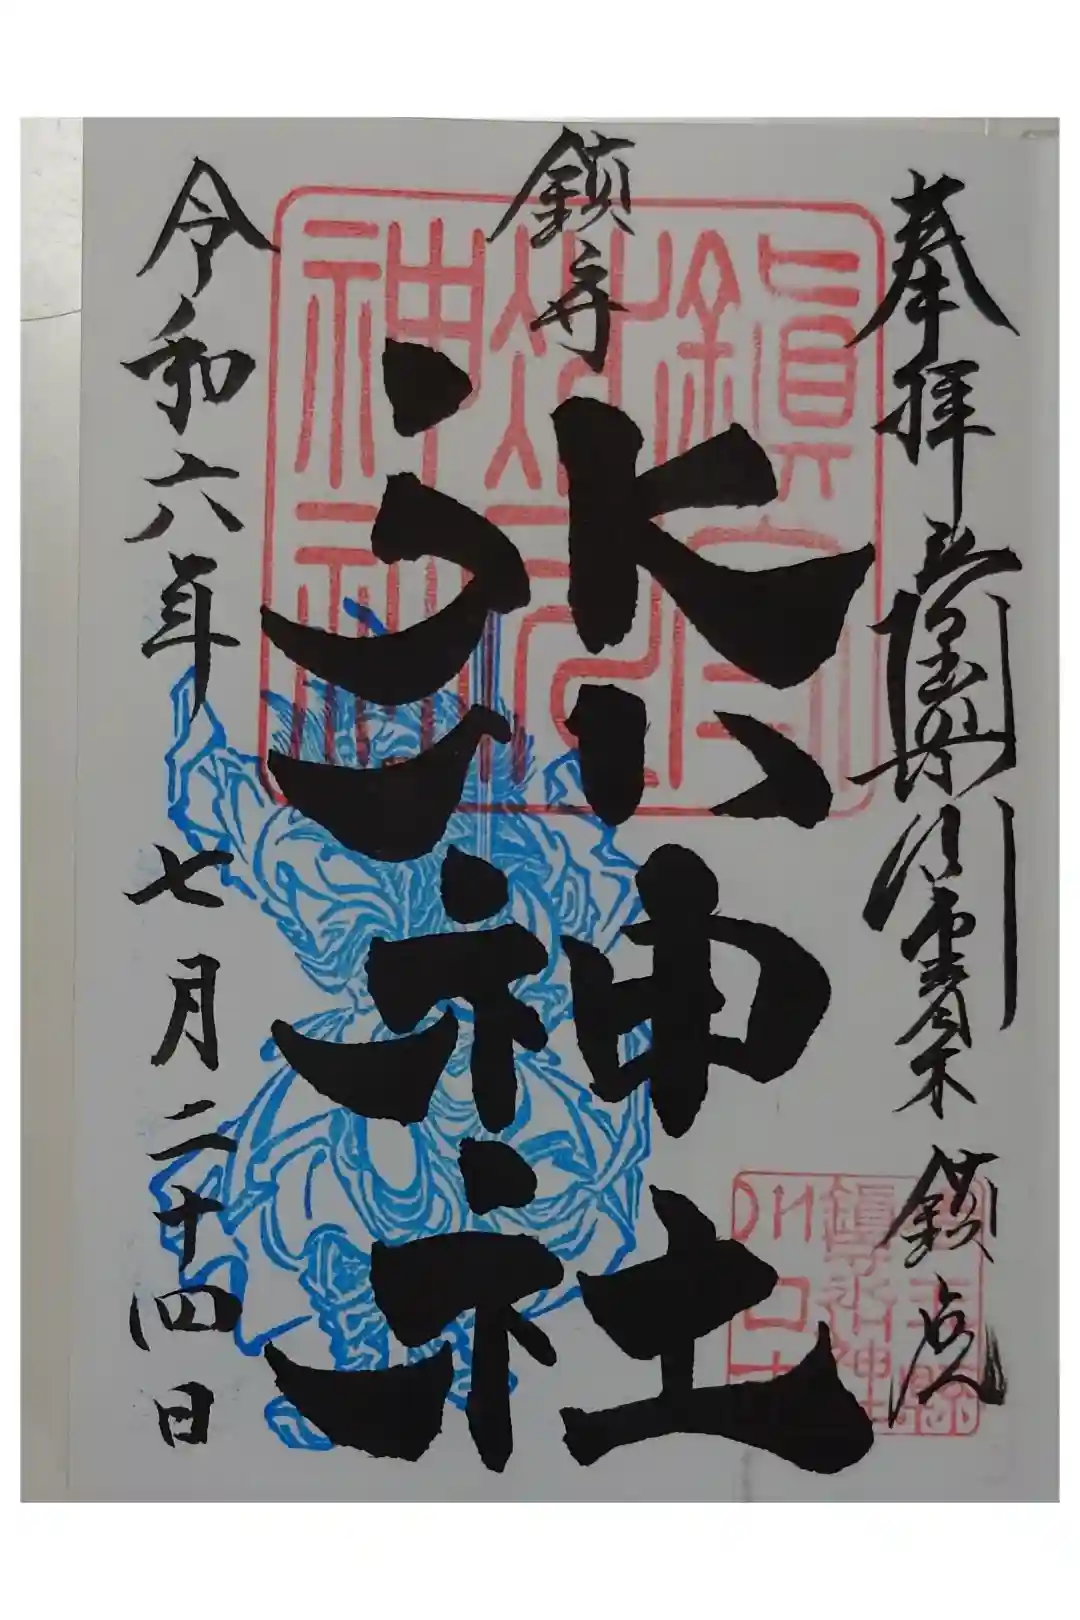 奉拝 埼玉県川口市青木 鎮座
鎮守
氷川神社
令和六年七月二十四日
鎮守
氷川
神社
鎮守氷川神社
川口市